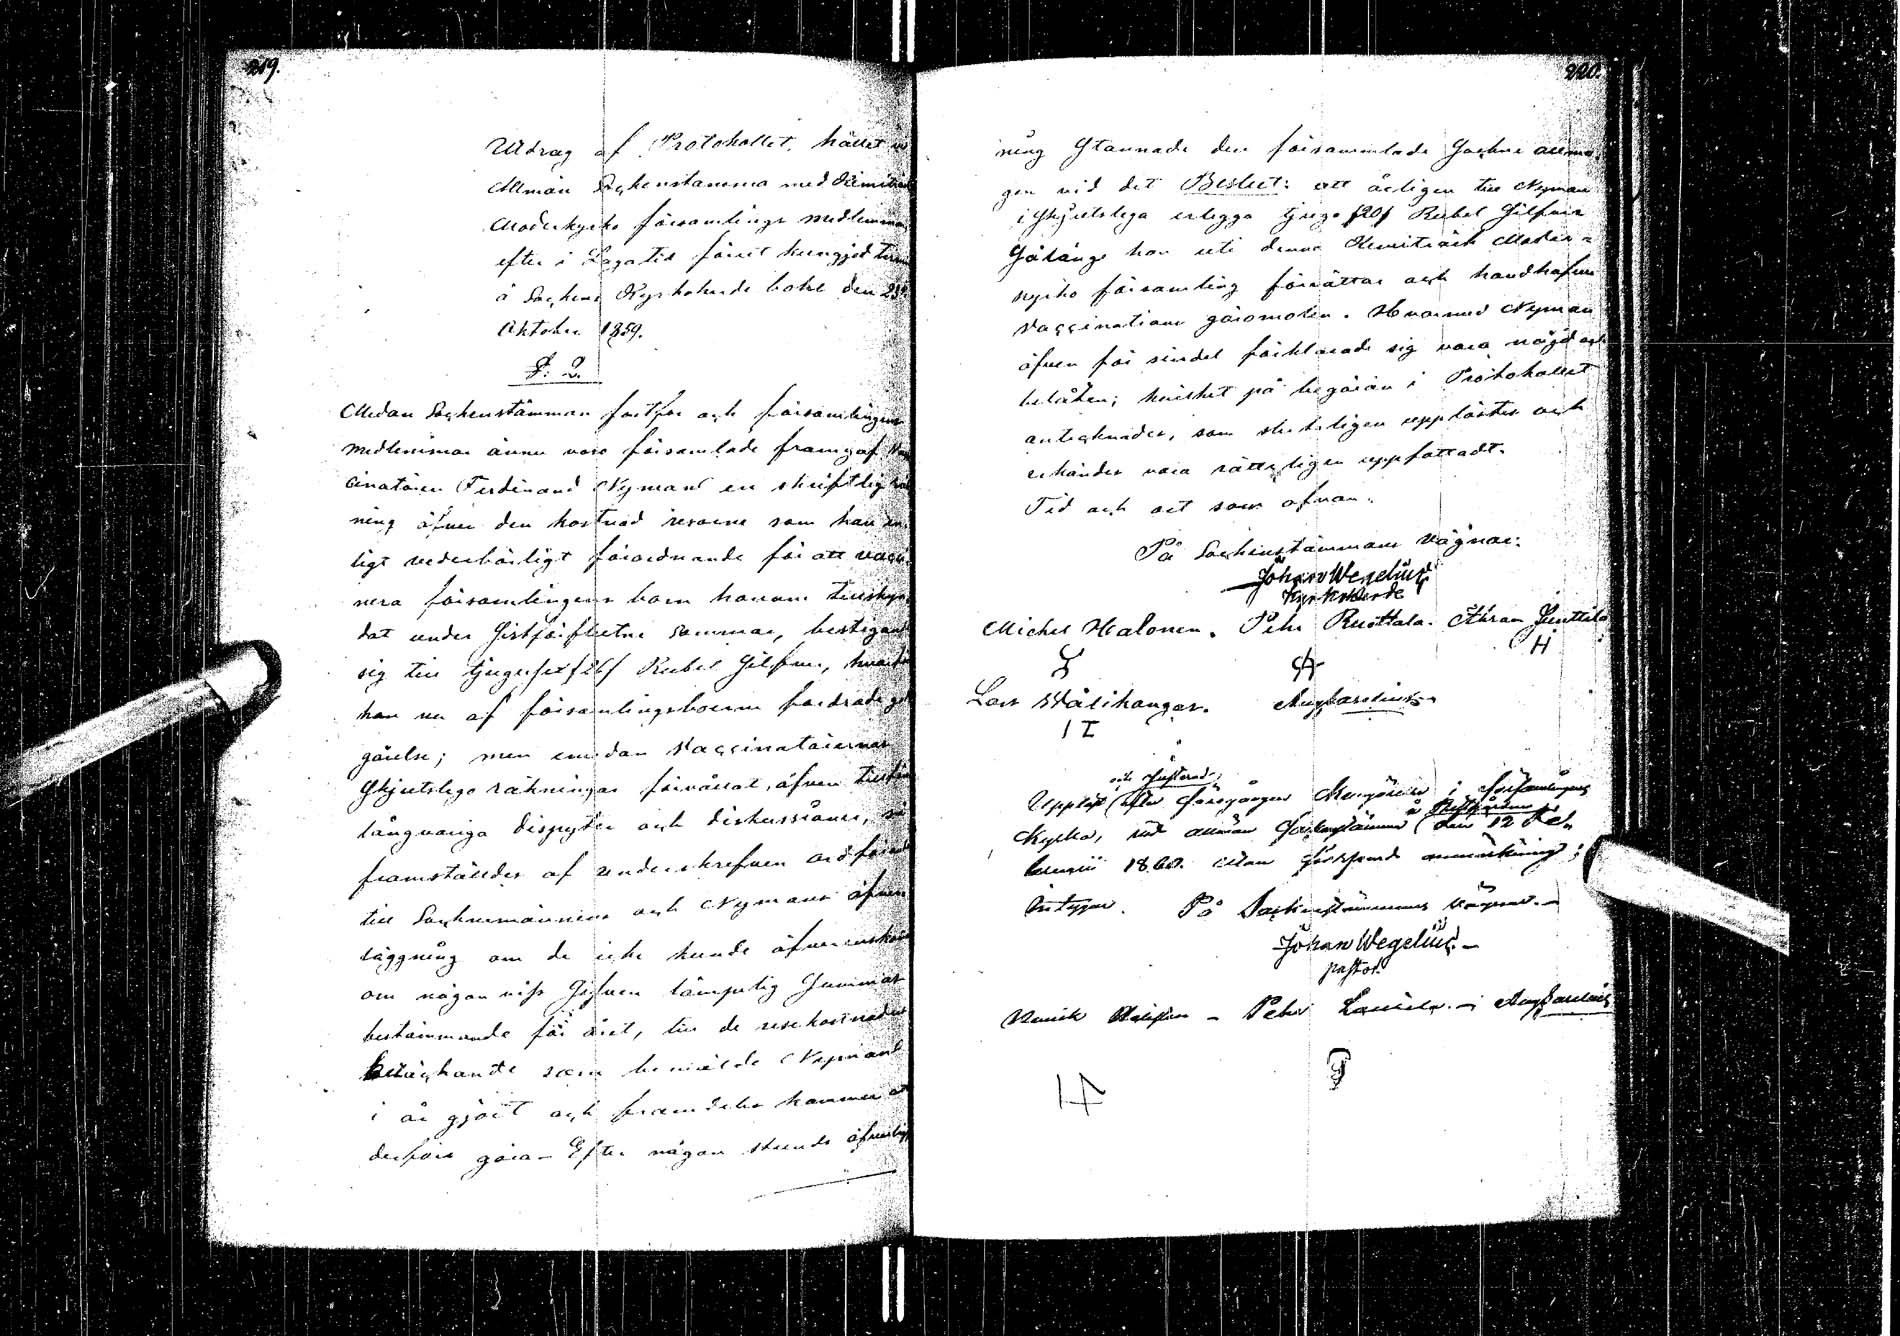 219.
Utdrag af Protokollet, hållet vid
Allmän Sockenstämma med Kemiträsk
Moderkyrko församlings medlemmar
efter i Lagatid förut kungjord termin
å Sockens Kyrkoherde bohl den 23
Oktober 1859.
§: 2.
Medan Sockenstämman fortfor och församlingens
medlemmar ännu voro församlade framgaf Vac-
cinatören Ferdinand Nyman en skriftlig räk
ning öfver den kostnad resorne som han en-
ligt vederbörligt förordnande för att vacci-
nera församlingens barn honom tillskyn-
dat under sistförflutne sommar, bestigande
sig till tjugusex [26] Rubel Silfver, hvarför
han nu af församlingsboerne fordrade god
görelse; men emedan Vaccinatörernas
Skjutslega räkningar förorsakat, äfven tillförne
långvariga dispyter och diskussioner, så
framställdes af underskrefven ordförande
till Socknemännerne och Nymans öfver
läggning om de icke kunde öfverenskomma
om någon viss Silfver lämpelig Summas
bestämmande för året, till de resekostnaders
betäckande som bemälde Nyman
i år gjort och framdeles kommer att
derföre göra – Efter någon stunds öfverlägg
220.
ning Stannade den församlade Sockne allmo-
gen vid det Beslut: att årligen till Nyman
i Skjutslega erlägga tjugo [20] Rubel Silfver
Sålänge han uti denna Kemiträsk Moder-
kyrko församling förrättar och handhafver
Vaccinations göromålen. Hvarmed Nyman
äfven för sin del förklarade sig vara nöjd och
belåten; hvilket på begäran i Protokollet
antecknades, som slutligen upplästes och
erkändes vara rätteligen uppfattadt.
Tid och ort som ofvan.
På Sockenstämmans vägnar:
Johan Wegelius
Kyrkoherde
Michel Halonen. Pehr Ruottala. Abram Junttila
Lars Wälikangas.
och justerad,
Uppläst efter föregången i församlingens
Kyrka, vid allmän Sockenstämma å Prestgården den 12 Feb-
ruarii 1860. utan anmärkning;
Intygar. På Sockenstämmans vägnar.–
Johan Wegelius.–
pastor.
Henrik – Pehr –